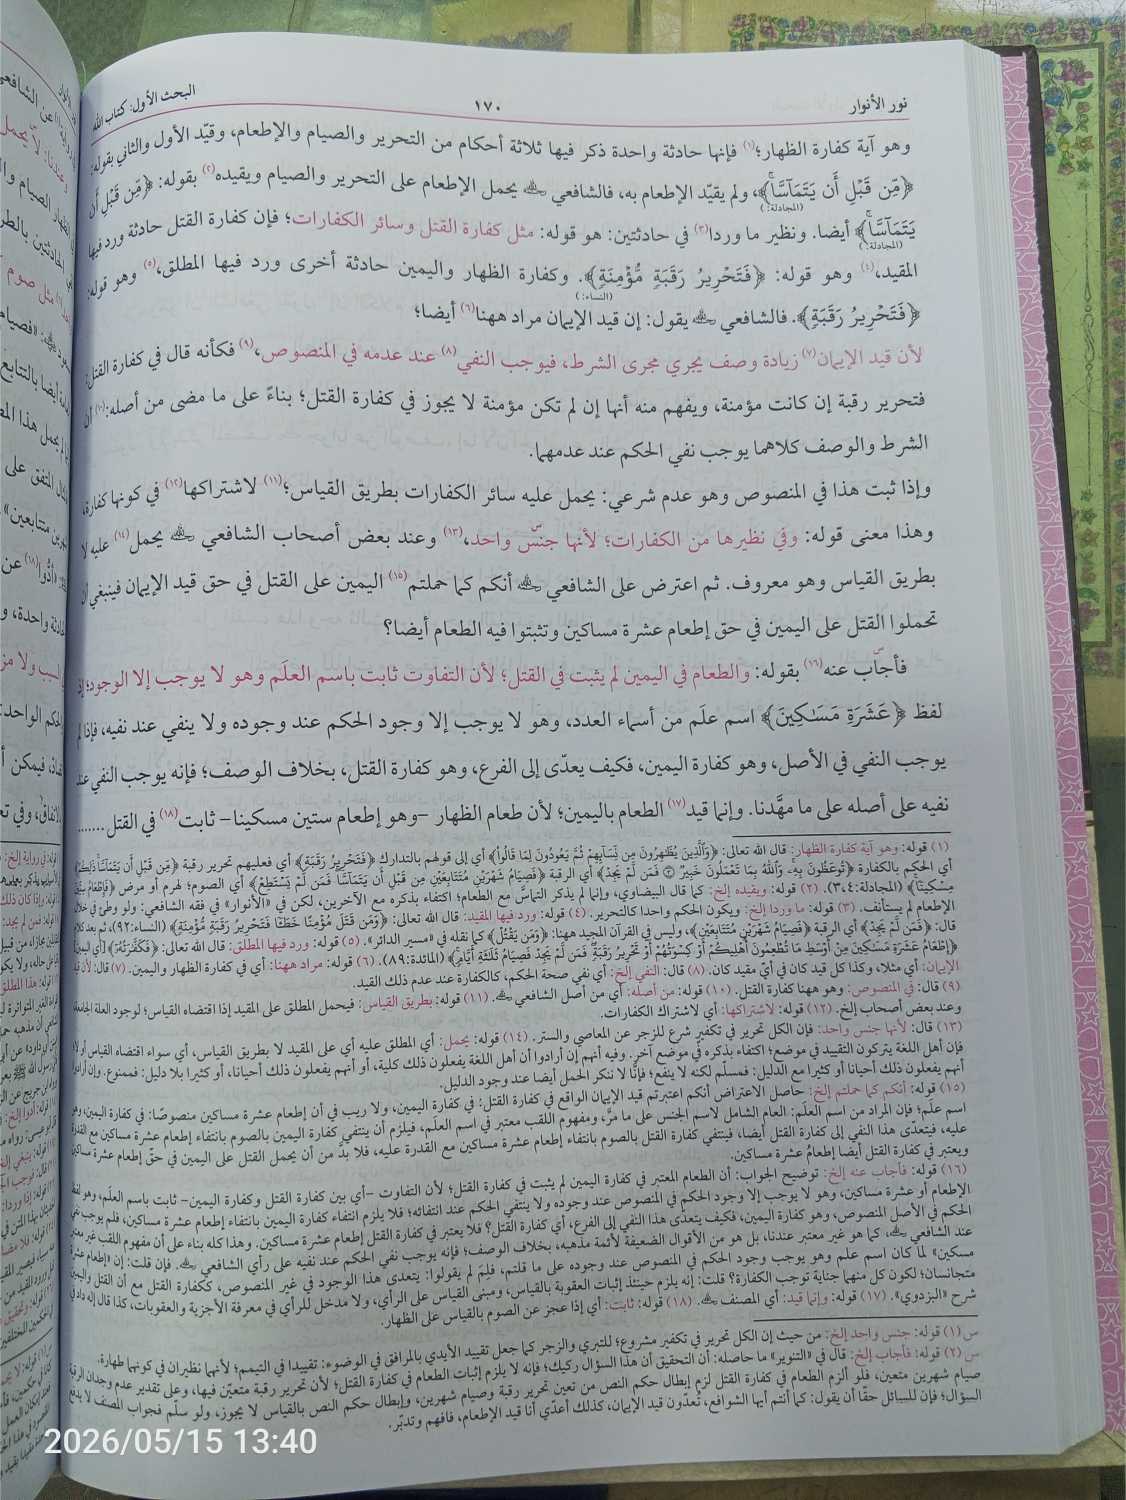 نور الأنوار
١٧٠
البحث الأول: كتاب الله
وهو آية كفارة الظهار؛(١) فإنها حادثة واحدة ذكر فيها ثلاثة أحكام من التحرير والصيام والإطعام، وقيّد الأول والثاني بقوله:
﴿مِّن قَبْلِ أَن يَتَمَآسَّاۚ﴾، ولم يقيّد الإطعام به، فالشافعي يحمل الإطعام على التحرير والصيام ويقيده(٢) بقوله: ﴿مِّن قَبْلِ أَن
(المجادلة:)
يَتَمَآسَّاۚ﴾ أيضا. ونظير ما وردا(٣) في حادثتين: هو قوله: مثل كفارة القتل وسائر الكفارات؛ فإن كفارة القتل حادثة ورد فيها
(المجادلة:)
المقيد،(٤) وهو قوله: ﴿فَتَحْرِيرُ رَقَبَةٍ مُّؤْمِنَةٍ﴾. وكفارة الظهار واليمين حادثة أخرى ورد فيها المطلق،(٥) وهو قوله:
(النساء:)
﴿فَتَحْرِيرُ رَقَبَةٍ﴾. فالشافعي يقول: إن قيد الإيمان مراد ههنا(٦) أيضا؛
لأن قيد الإيمان(٧) زيادة وصف يجري مجرى الشرط، فيوجب النفي(٨) عند عدمه في المنصوص،(٩) فكأنه قال في كفارة القتل:
فتحرير رقبة إن كانت مؤمنة، ويفهم منه أنها إن لم تكن مؤمنة لا يجوز في كفارة القتل؛ بناءً على ما مضى من أصله:(١٠) أن
الشرط والوصف كلاهما يوجب نفي الحكم عند عدمهما.
وإذا ثبت هذا في المنصوص وهو عدم شرعي: يحمل عليه سائر الكفارات بطريق القياس؛(١١) لاشتراكها(١٢) في كونها كفارة،
وهذا معنى قوله: وفي نظيرها من الكفارات؛ لأنها جنس واحد،(١٣) وعند بعض أصحاب الشافعي يحمل(١٤) عليه لا
بطريق القياس وهو معروف. ثم اعترض على الشافعي أنكم كما حملتم(١٥) اليمين على القتل في حق قيد الإيمان فينبغي أن
تحملوا القتل على اليمين في حق إطعام عشرة مساكين وتثبتوا فيه الطعام أيضا؟
فأجاب عنه(١٦) بقوله: والطعام في اليمين لم يثبت في القتل؛ لأن التفاوت ثابت باسم العلَم وهو لا يوجب إلا الوجود؛ إذ
لفظ ﴿عَشَرَةِ مَسَٰكِينَ﴾ اسم علَم من أسماء العدد، وهو لا يوجب إلا وجود الحكم عند وجوده ولا ينفي عند نفيه، فإذا لم
يوجب النفي في الأصل، وهو كفارة اليمين، فكيف يعدّى إلى الفرع، وهو كفارة القتل، بخلاف الوصف؛ فإنه يوجب النفي عند
نفيه على أصله على ما مهَّدنا. وإنما قيد(١٧) الطعام باليمين؛ لأن طعام الظهار –وهو إطعام ستين مسكينا– ثابت(١٨) في القتل.......
(١) قوله: وهو آية كفارة الظهار: قال الله تعالى: ﴿وَٱلَّذِينَ يُظَٰهِرُونَ مِن نِّسَآئِهِمْ ثُمَّ يَعُودُونَ لِمَا قَالُواْ﴾ أي إلى قولهم بالتدارك ﴿فَتَحْرِيرُ رَقَبَةٍ﴾ أي فعليهم تحرير رقبة ﴿مِّن قَبْلِ أَن يَتَمَآسَّا ذَٰلِكُمْ﴾
أي الحكم بالكفارة ﴿تُوعَظُونَ بِهِۦ وَٱللَّهُ بِمَا تَعْمَلُونَ خَبِيرٌ ۝ فَمَن لَّمْ يَجِدْ﴾ أي الرقبة ﴿فَصِيَامُ شَهْرَيْنِ مُتَتَابِعَيْنِ مِن قَبْلِ أَن يَتَمَآسَّا فَمَن لَّمْ يَسْتَطِعْ﴾ أي الصوم؛ لهرم أو مرض ﴿فَإِطْعَامُ سِتِّينَ
مِسْكِينًا﴾ (المجادلة:٣،٤). (٢) قوله: ويقيده إلخ: كما قال البيضاوي، وإنما لم يذكر التماسّ مع الطعام؛ اكتفاء بذكره مع الآخرين، لكن في «الأنوار» في فقه الشافعي: ولو وطئ في خلال
الإطعام لم يستأنف. (٣) قوله: ما وردا إلخ: ويكون الحكم واحدا كالتحرير. (٤) قوله: ورد فيها المقيد: قال الله تعالى: ﴿وَمَن قَتَلَ مُؤْمِنًا خَطَـًٔا فَتَحْرِيرُ رَقَبَةٍ مُّؤْمِنَةٍ﴾ (النساء:٩٢)،
قال: ﴿فَمَن لَّمْ يَجِدْ﴾ أي الرقبة ﴿فَصِيَامُ شَهْرَيْنِ مُتَتَابِعَيْنِ﴾، وليس في القرآن المجيد ههنا: ﴿وَمَن يَقْتُلْ﴾ كما نقله في «مسير الدائر». (٥) قوله: ورد فيها المطلق: قال الله تعالى: ﴿فَكَفَّٰرَتُهُۥٓ﴾ أي اليمين
﴿إِطْعَامُ عَشَرَةِ مَسَٰكِينَ مِنْ أَوْسَطِ مَا تُطْعِمُونَ أَهْلِيكُمْ أَوْ كِسْوَتُهُمْ أَوْ تَحْرِيرُ رَقَبَةٍ فَمَن لَّمْ يَجِدْ فَصِيَامُ ثَلَٰثَةِ أَيَّامٍ﴾ (المائدة:٨٩). (٦) قوله: مراد ههنا: أي في كفارة الظهار واليمين. (٧) قال: لأن قيد
الإيمان: أي مثلا، وكذا كل قيد كان في أيّ مقيد كان. (٨) قال: النفي إلخ: أي نفي صحة الحكم، كالكفارة عند عدم ذلك القيد.
(٩) قال: في المنصوص: وهو ههنا كفارة القتل. (١٠) قوله: من أصله: أي من أصل الشافعي. (١١) قوله: بطريق القياس: فيحمل المطلق على المقيد إذا اقتضاه القياس؛ لوجود العلة الجامعة
وعند بعض أصحاب إلخ. (١٢) قوله: لاشتراكها: أي لاشتراك الكفارات.
(١٣) قال: لأنها جنس واحد: فإن الكل تحرير في تكفير شرع للزجر عن المعاصي والستر. (١٤) قوله: يحمل: أي المطلق عليه أي على المقيد لا بطريق القياس، أي سواء اقتضاه القياس أو لا
فإن أهل اللغة يتركون التقييد في موضع؛ اكتفاء بذكره في موضع آخر. وفيه أنهم إن أرادوا أن أهل اللغة يفعلون ذلك كلية، أو أنهم يفعلون ذلك أحيانا، أو كثيرا بلا دليل: فممنوع. وإن أرادوا
أنهم يفعلون ذلك أحيانا أو كثيرا مع الدليل: فمسلّم لكنه لا ينفع؛ فإنّا لا ننكر الحمل أيضا عند وجود الدليل.
(١٥) قوله: أنكم كما حملتم إلخ: حاصل الاعتراض أنكم اعتبرتم قيد الإيمان الواقع في كفارة القتل: في كفارة اليمين، ولا ريب في أن إطعام عشرة مساكين منصوصًا: في كفارة اليمين، وهو
اسم علَم؛ فإن المراد من اسم العلَم: العام الشامل لاسم الجنس على ما مرّ، ومفهوم اللقب معتبر في اسم العلَم، فيلزم أن ينتفي كفارة اليمين بالصوم بانتفاء إطعام عشرة مساكين مع القدرة
عليه، فيتعدّى هذا النفي إلى كفارة القتل أيضا، فينتفي كفارة القتل بالصوم بانتفاء إطعام عشرة مساكين مع القدرة عليه، فلا بدّ من أن يحمل القتل على اليمين في حقّ إطعام عشرة مساكين
ويعتبر في كفارة القتل أيضا إطعامُ عشرة مساكين.
(١٦) قوله: فأجاب عنه إلخ: توضيح الجواب: أن الطعام المعتبر في كفارة اليمين لم يثبت في كفارة القتل؛ لأن التفاوت –أي بين كفارة القتل وكفارة اليمين– ثابت باسم العلَم، وهو لفظ
الإطعام أو عشرة مساكين، وهو لا يوجب إلا وجود الحكم في المنصوص عند وجوده ولا ينتفي الحكم عند انتفائه؛ فلا يلزم انتفاء كفارة اليمين بانتفاء إطعام عشرة مساكين، فلم يوجب نفي
الحكم في الأصل المنصوص، وهو كفارة اليمين، فكيف يتعدّى هذا النفي إلى الفرع، أي كفارة القتل؟ فلا يعتبر في كفارة القتل إطعام عشرة مساكين. وهذا كله بناء على أن مفهوم اللقب غير معتبر
عند الشافعي، كما هو غير معتبر عندنا، بل هو من الأقوال الضعيفة لأئمة مذهبه، بخلاف الوصف؛ فإنه يوجب نفي الحكم عند نفيه على رأي الشافعي. فإن قلت: إن «إطعام عشرة
مسكين» لما كان اسم علم وهو يوجب وجود الحكم في المنصوص عند وجوده على ما قلتم، فلِمَ لم يقولوا: يتعدى هذا الوجود في غير المنصوص، ككفارة القتل مع أن القتل واليمين
متجانسان؛ لكون كل منهما جناية توجب الكفارة؟ قلت: إنه يلزم حينئذ إثبات العقوبة بالقياس، ومبنى القياس على الرأي، ولا مدخل للرأي في معرفة الأجزية والعقوبات، كذا قال
شرح «البزدوي». (١٧) قوله: وإنما قيد: أي المصنف. (١٨) قوله: ثابت: أي إذا عجز عن الصوم بالقياس على الظهار.
س(١) قوله: جنس واحد إلخ: من حيث إن الكل تحرير في تكفير مشروع؛ للتبري والزجر كما جعل تقييد الأيدي بالمرافق في الوضوء: تقييدا في التيمم؛ لأنهما نظيران في كونهما طهارة.
س(٢) قوله: فأجاب إلخ: قال في «التنوير» ما حاصله: أن التحقيق أن هذا السؤال ركيك؛ فإنه لا يلزم إثبات الطعام في كفارة القتل؛ لأن تحرير رقبة متعيّن فيها، وعلى تقدير عدم وجدان الرقبة
صيام شهرين متعين، فلو ألزم الطعام في كفارة القتل لزم إبطال حكم النص من تعين تحرير رقبة وصيام شهرين، وإبطال حكم النص بالقياس لا يجوز، ولو سلّم فجواب المصنف لا يدفع
السؤال؛ فإن للسائل حقًا أن يقول: كما أنتم أيها الشوافع، تُعدّون قيد الإيمان، كذلك أعدّي أنا قيد الإطعام، فافهم وتدبّر.
2026/05/15 13:40